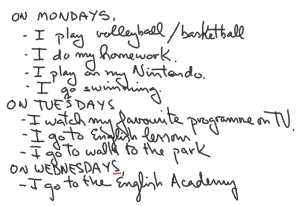 ON MONDAYS,
- I play volleyball/basketball
- I do my homework.
- I play on my Nintendo.
- I go swimming.
ON TUESDAYS
- I watch my favourite programme on TV.
- I go to English lesson.
- I go to walk to the park
ON WEDNESDAYS,
- I go to the English Academy